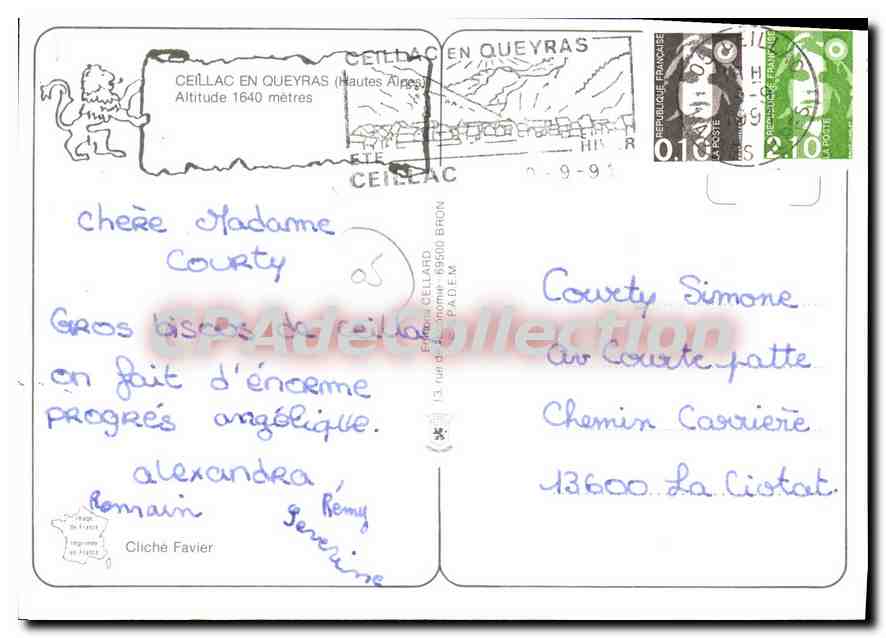 CEILLAC EN QUEYRAS (Hautes Alpes)
Altitude 1640 mètres
CEILLAC EN QUEYRAS
ETE
HIVER
CEILLAC
-9-9
REPUBLIQUE FRANÇAISE
0,10
LA POSTE
REPUBLIQUE FRANÇAISE
2,10
LA POSTE
05
chère Madame
COURTY
05
GROS biscos de ceillac
on fait d'énorme
PROGRÉS angélique.
alexandra
Romain
Rémy
Severine
Image
de France
imprimée
en France
Cliché Favier
Editions CELLARD
13, rue de l'Economie - 69500 BRON
P.A.D.E.M
Courty Simone
av Courte patte
Chemin Carrière
13600 La Ciotat.
CPAdeCollection